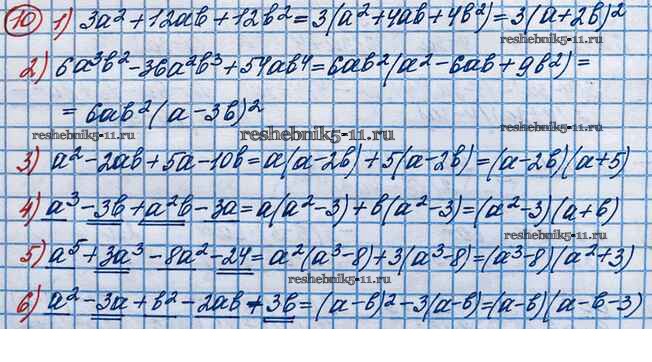 10 1) 3a² + 12ab + 12b² = 3(a² + 4ab + 4b²) = 3(a + 2b)²
2) 6a³b² - 36a²b³ + 54ab⁴ = 6ab²(a² - 6ab + 9b²) =
= 6ab²(a - 3b)²
reshebnik5-11.ru
reshebnik5-11.ru
reshebnik5-11.ru
3) a² - 2ab + 5a - 10b = a(a - 2b) + 5(a - 2b) = (a - 2b)(a + 5)
reshebnik5-11.ru
4) a³ - 3b + a²b - 3a = a(a² - 3) + b(a² - 3) = (a² - 3)(a + b)
5) a⁵ + 3a³ - 8a² - 24 = a²(a³ - 8) + 3(a³ - 8) = (a³ - 8)(a² + 3)
reshebnik5-11.ru
6) a² - 3a + b² - 2ab + 3b = (a - b)² - 3(a - b) = (a - b)(a - b - 3)